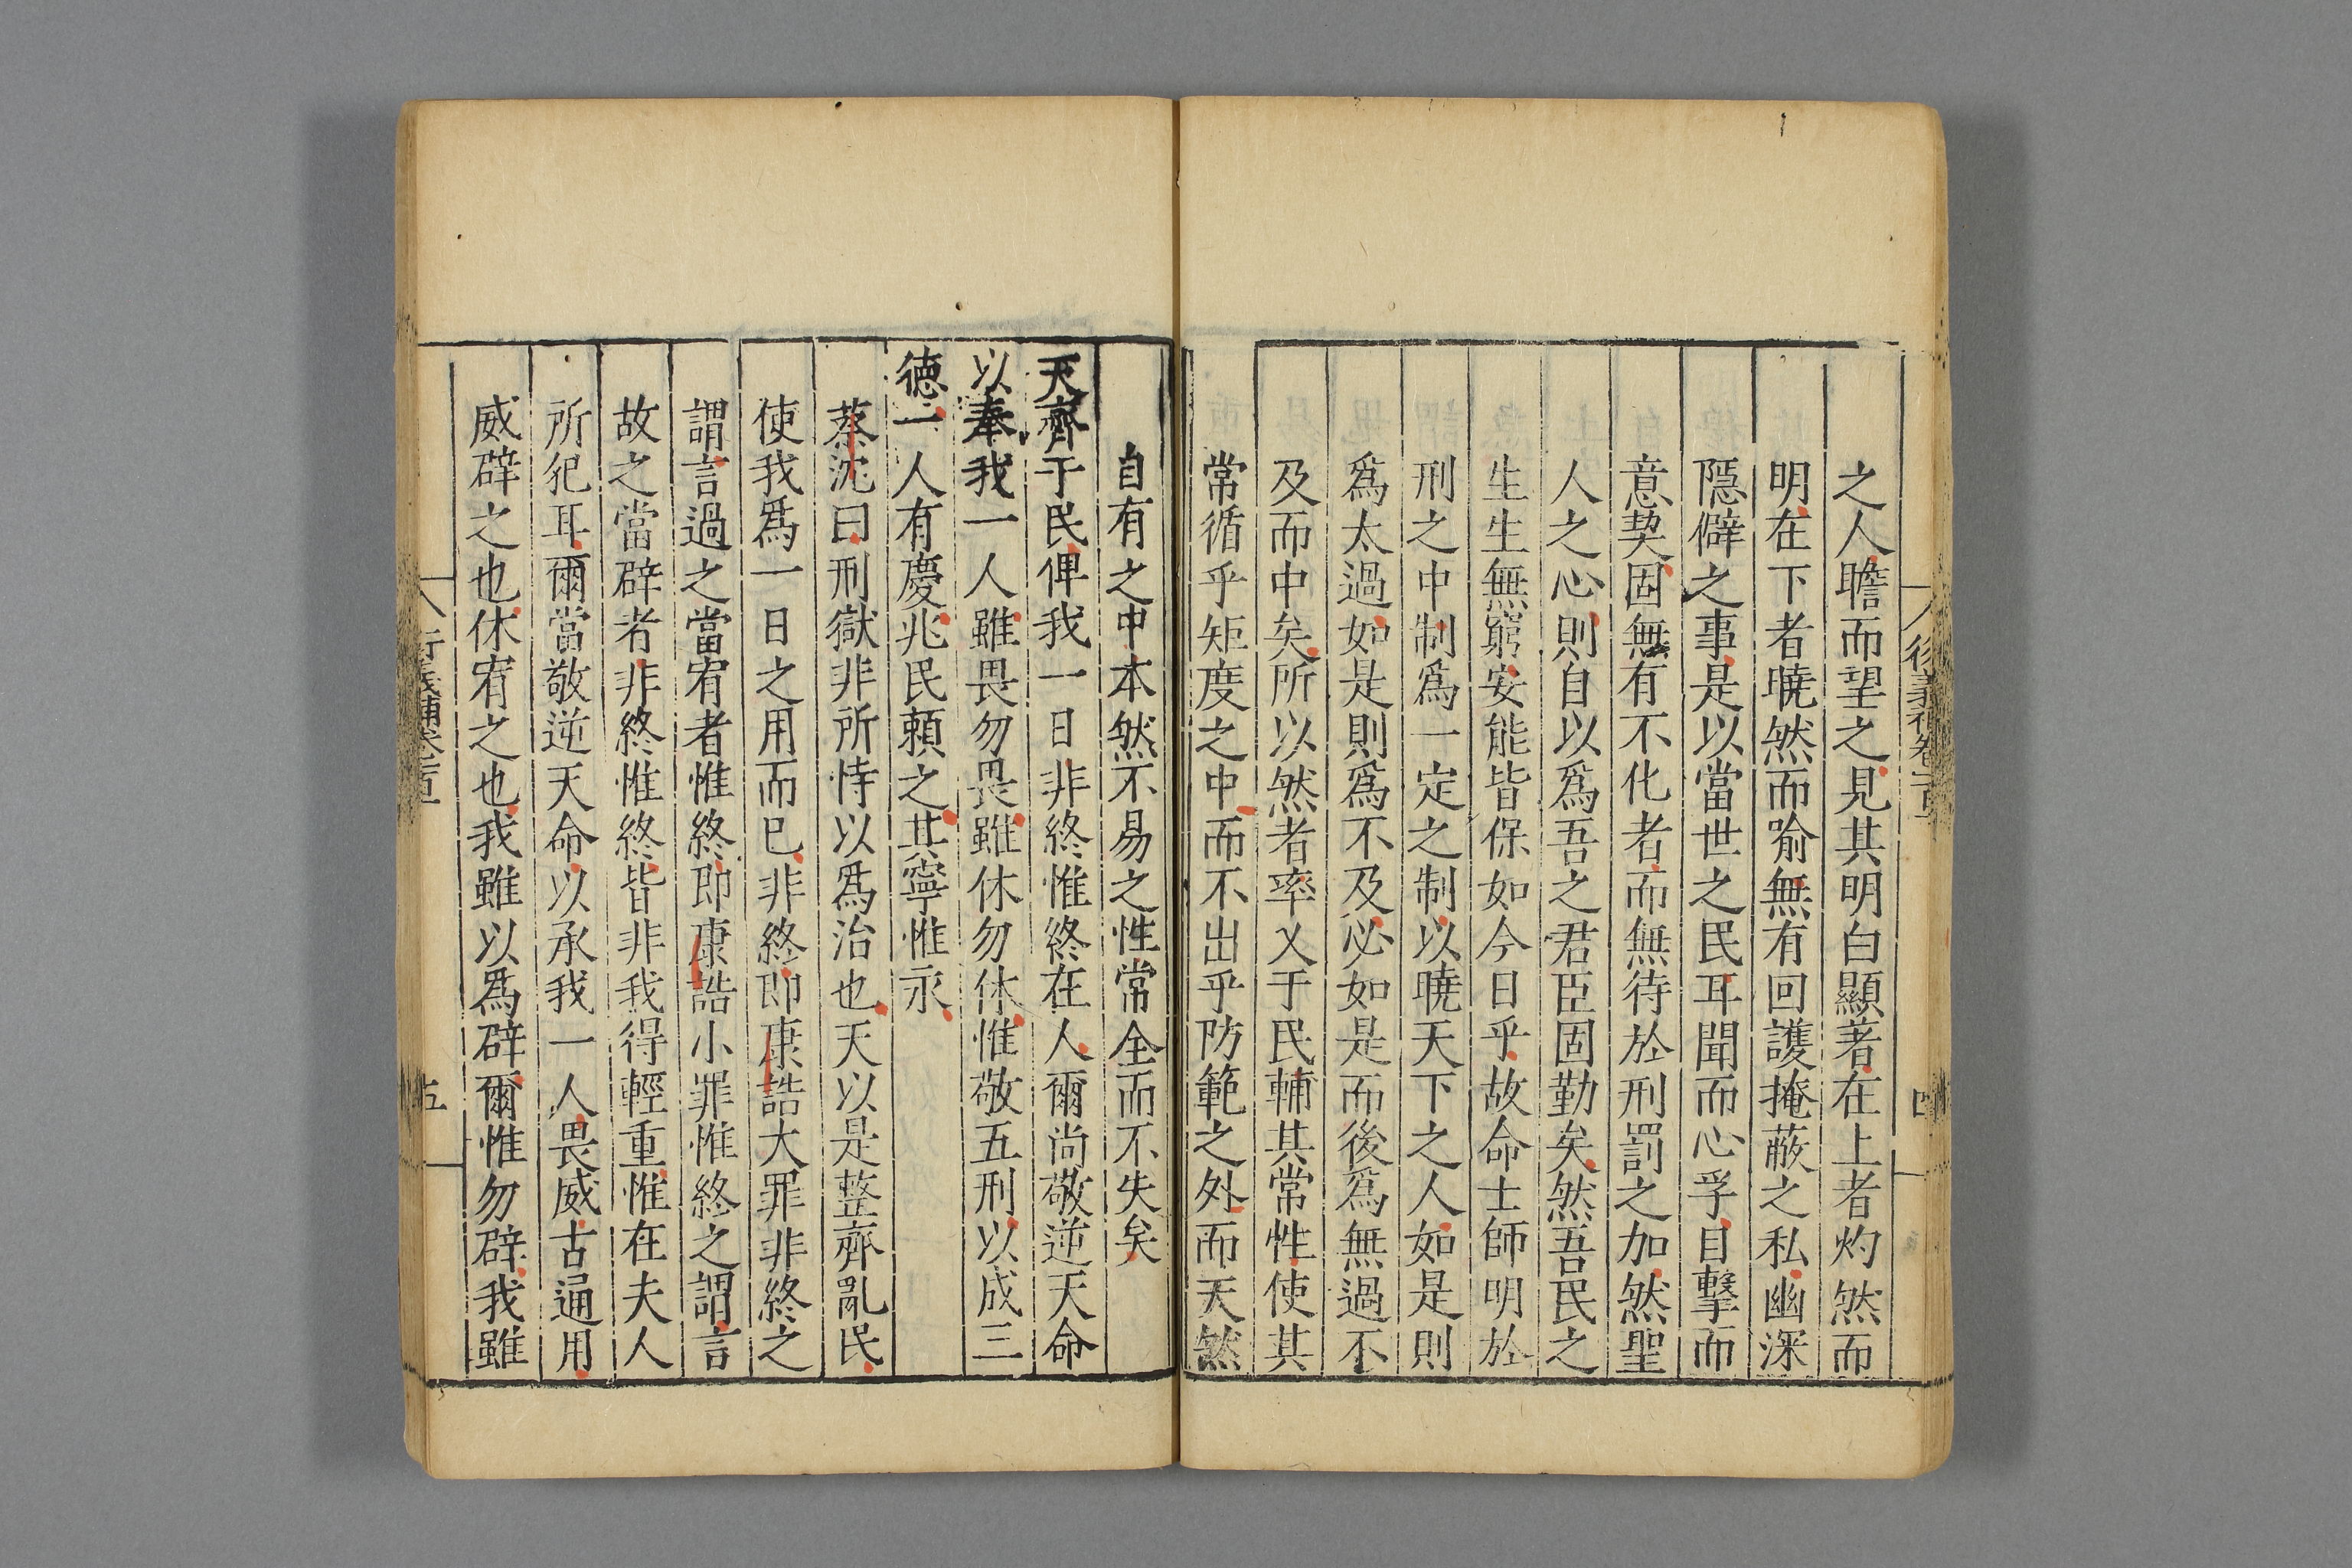 之人瞻而望之見其明白顯著在上者灼然而
明在下者曉然而喻無有回護掩蔽之私幽深
隱僻之事是以當世之民耳聞而心孚目擊而
意契固無有不化者而無待於刑罰之加然聖
人之心則自以爲吾之君臣固勤矣然吾民之
生生無窮安能皆保如今日乎故命士師明於
刑之中制爲一定之制以曉天下之人如是則
爲太過如是則爲不及必如是而後爲無過不
及而中矣所以然者率乂于民輔其常性使其
常循乎矩度之中而不出乎防範之外而天然
自有之中本然不易之性常全而不失矣
天齊于民俾我一日非終惟終在人爾尚敬逆天命
以奉我一人雖畏勿畏雖休勿休惟敬五刑以成三
德一人有慶兆民賴之其寧惟永
蔡沈曰刑獄非所恃以爲治也天以是整齊亂民
使我爲一日之用而已非終即康誥大罪非終之
謂言過之當宥者惟終即康誥小罪惟終之謂言
故之當辟者非終惟終皆非我得輕重惟在夫人
所犯耳爾當敬逆天命以承我一人畏威古通用
威辟之也休宥之也我雖以爲辟爾惟勿辟我雖
五